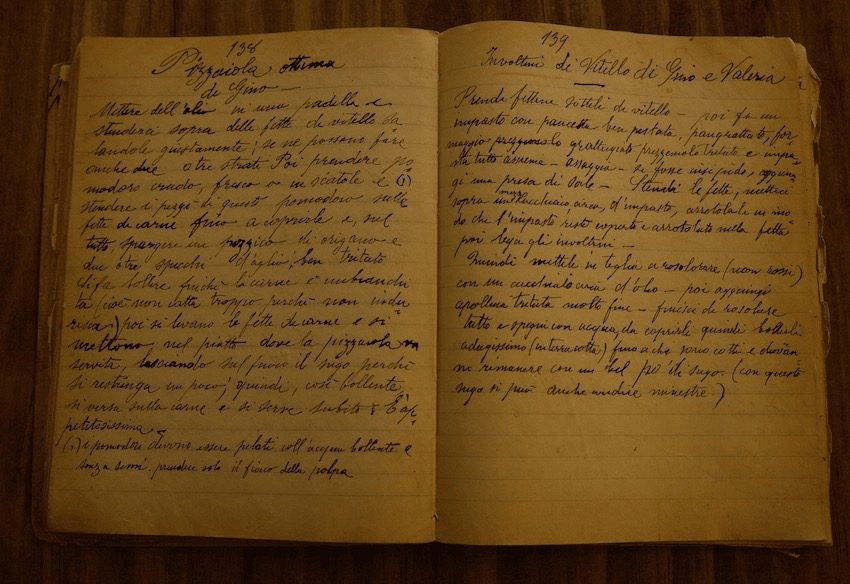 138
Pizzaiola ottima
di Gino —
Mettere dell'olio in una padella e
stenderci sopra delle fette di vitello sa
landole giustamente; se ne possono fare
anche due o tre strati Poi prendere po
modoro crudo, fresco o in scatole e (1)
stendere i pezzi di questo pomodoro sulle
fette di carne fino a coprirle e, sul
tutto, spargere un pizzico di origano e
due o tre spicchi d'aglio, ben tritato
Si fa bollire finché la carne è imbianchi
ta (cioè non cotta troppo perché non indu
risca) poi si levano le fette di carne e si
mettono, nel piatto dove la pizzaiola va
servita, lasciando sul fuoco il sugo perché
si restringa un poco; quindi, così bollente,
si versa sulla carne e si serve subito. È ap-
petitosissima —
(1) i pomodori devono essere pelati coll'acqua bollente e
senza semi. prendere solo il fisso della polpa
139
Involtini di Vitello di Gino e Valeria
Prendi fettine sottili di vitello — poi fa un
impasto con pancetta ben pestata, pangrattato, for-
maggio grattugiato prezzemolo tritato e impa-
sta tutto assieme — assaggia — se fosse insipido, aggiun-
gi una presa di sale — Stendi le fette, mettici
sopra mezzo cucchiaio circa, d'impasto, arrotolale in mo-
do che l'impasto resti coperto e arrotolato nella fetta
poi lega gli involtini —
Quindi mettili in teglia a rosolorare (ricon rossi)
con un cucchiaio circa d'olio — poi aggiungi
cipollina tritata molto fine — finisci di rosolare
tutto e spegni con acqua, da coprirli quindi bollirli
adagissimo (in terracotta) fino a che sono cotti e devo-
no rimanere con un bel po' di sugo. (con questo
sugo si può anche condire minestre.)